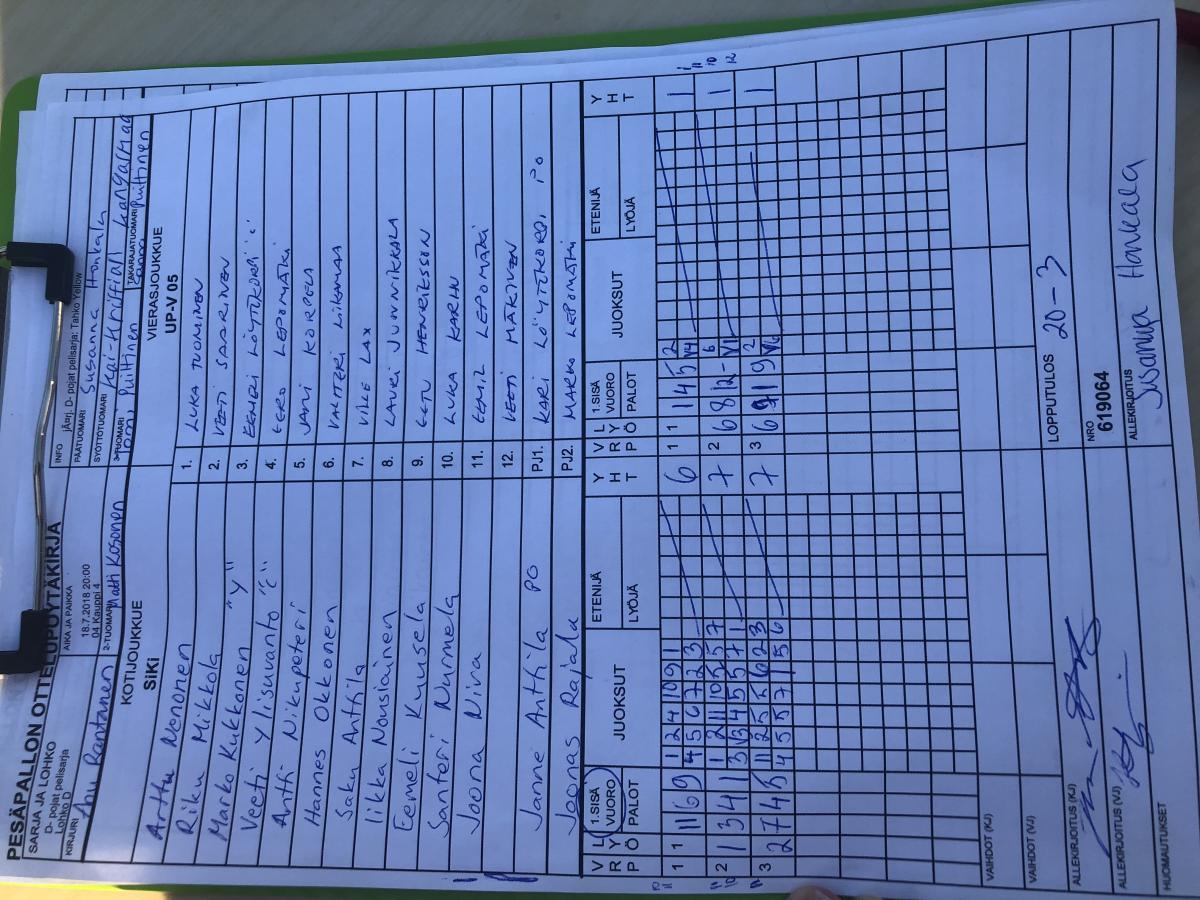 PESÄPALLON OTTELUPÖYTÄKIRJA
SARJA JA LOHKO
D- pojat pelisarja
Lohko D
AIKA JA PAIKKA
18.7.2018 20:00
04 Kauppi 4
INFO järj. D-pojat pelisarja: Tahko Yellow
PÄÄTUOMARI Susanna Honkala
SYÖTTÖTUOMARI
KIRJURI Anu Rantanen
2-TUOMARI Matti Kosonen
3-TUOMARI
TAKARAJATUOMARI
KOTIJOUKKUE
SiKi
VIERASJOUKKUE
UP-V 05
Arttu Nenonen 1. LUKA TUOMINEN
Riku Mikkola 2. VEETI SAARINEN
Marko Kukkonen "Y" 3. EEMERI LÖYTÖKORPI "C"
Veeti Ylisuvanto "C" 4. EERO LEPOMÄKI
Antti Nikupeteri 5. JANI KORPELA
Hannes Okkonen 6. VALTTERI LIKAMAA
Saku Anttila 7. VILLE LAX
Iikka Nousiainen 8. LAURI JUNNIKKALA
Eemeli Kuusela 9. EETU HENRIKSSON
Santeri Nurmela 10. LUKA KARHU
Joona Niva 11. EEMIL LEPOMÄKI
12. VEETI MÄKINEN
Janne Anttila PO PJ1. KARI LÖYTÖKORPI, PO
Joonas Rajala PJ2. MARKO LEPOMÄKI
V R P L Y Ö 1.SISÄ VUORO PALOT JUOKSUT ETENIJÄ LYÖJÄ Y H T
V R P L Y Ö 1.SISÄ VUORO PALOT JUOKSUT ETENIJÄ LYÖJÄ Y H T
1 1 11 6 9 1 2 4 10 9 1 6
4 5 6 7 2 3
1 1 1 4 5 2 1
2 1 3 4 1 1 2 11 10 5 7 7
3 3 4 5 5 7 1
2 6 8 12 6 1
3 2 7 4 5 11 2 5 5 6 2 3 7
4 5 5 7 1 5 6
3 9 2 1
VAIHDOT (KJ)
VAIHDOT (VJ)
LOPPUTULOS 20-3
ALLEKIRJOITUS (KJ)
NRO
619064
ALLEKIRJOITUS (VJ)
ALLEKIRJOITUS
Susanna Honkala
HUOMAUTUKSET